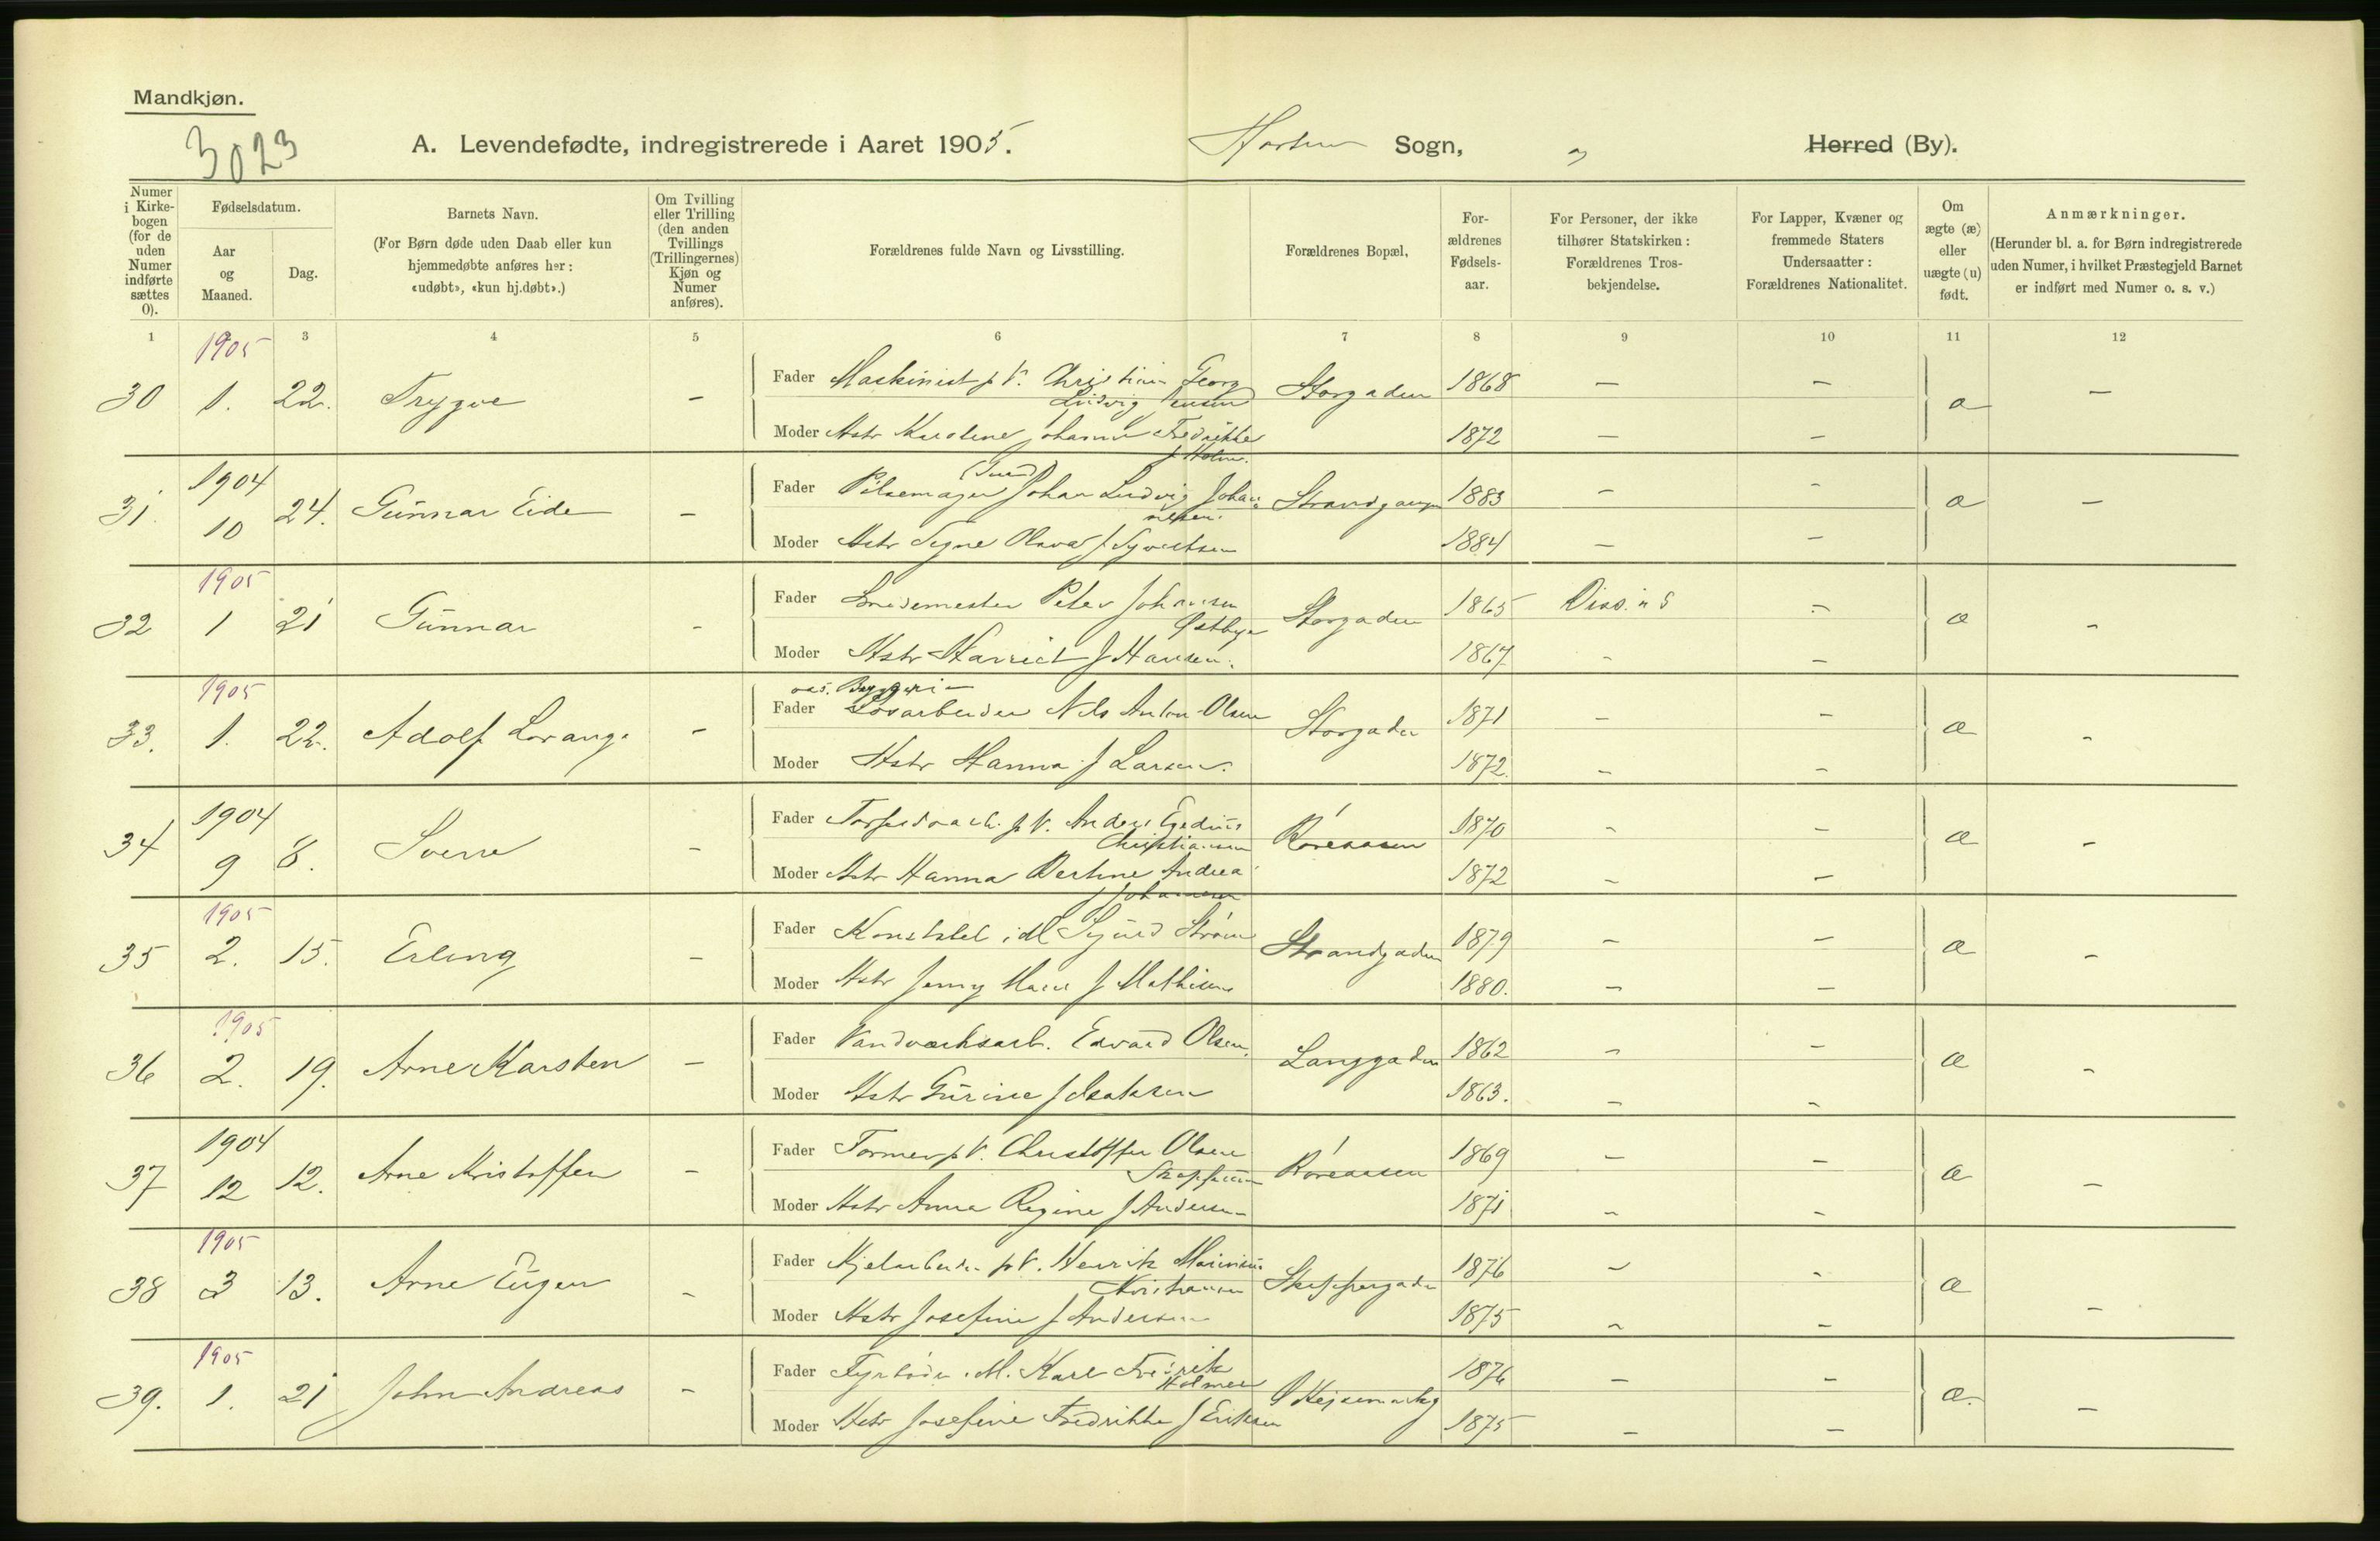 Mandkjøn.
3023
A. Levendefødte, indregistrerede i Aaret 1905. Horten Sogn, " Herred (By).
Numer i Kirkebogen (for de uden Numer indførte sættes 0).
Fødselsdatum.
Aar og Maaned.
Dag.
Barnets Navn.
(For Børn døde uden Daab eller kun hjemmedøbte anføres her: «udøbt», «kun hj.døbt».)
Om Tvilling eller Trilling (den anden Tvillings (Trillingernes) Kjøn og Numer anføres).
Forældrenes fulde Navn og Livsstilling.
Forældrenes Bopæl,
Forældrenes Fødselsaar.
For Personer, der ikke tilhører Statskirken: Forældrenes Trosbekjendelse.
For Lapper, Kvæner og fremmede Staters Undersaatter: Forældrenes Nationalitet.
Om ægte (æ) eller uægte (u) født.
Anmærkninger.
(Herunder bl. a. for Børn indregistrerede uden Numer, i hvilket Præstegjeld Barnet er indført med Numer o. s. v.)
1 3 4 5 6 7 8 9 10 11 12
1905
30 1. 22. Trygve – Fader Maskinist p V. Christian Georg Ludvig Jensen Storgaden 1868 – – æ –
Moder Hstr Johanne Fredrikke f Holm. 1872 – –
1904
31. 10 24. Gunnar Eide – Fader Pølsemager Johan Ludvig Johannesen Strandgaden 1883 – – æ –
Moder Hstr Signe Olava f Syvertsen 1884 – –
1905
32 1 21 Gunnar – Fader Smedemester Peter Johansen Østbye Storgaden 1865 Diss. – æ –
Moder Hstr Harriet f Hansen. 1867 – –
1905
33. 1. 22. Adolf Lorang. – Fader Bryggeri Løsarbeider Nils Anton Olsen Storgaden 1871 – – æ –
Moder Hstr Hanna f Larsen. 1872. – –
1904
34 9 8. Sverre – Fader p V. Anders Egedius Christiansen Røreaasen 1870 – – æ –
Moder Hstr Hanna Bertine Andrea f Johansen 1872 – –
1905
35 2. 15. Erling – Fader Konstabel i M Sigurd Strøm Strandgaden 1879 – – æ –
Moder Hstr Jenny Marie f Mathisen 1880. – –
1905
36 2. 19. Arne Karsten – Fader Vandværksarb. Edvard Olsen. Langgaden 1862 – – æ –
Moder Hstr Gurine f Isaksen 1863. – –
1904
37 12 12. Arne Kristoffer – Fader Former p V. Christoffer Olsen Røreaasen 1869 – – æ –
Moder Hstr Anna Regine f Andersen 1871 – –
1905
38 3 13. Arne Eugen – Fader p V. Henrik Marinius Kristiansen Skippergaden 1876 – – æ –
Moder Hstr Josefine f Andersen 1875 – –
1905
39. 1. 21 John Andreas – Fader Fyrbøder i M. Karl Fredrik Holmen Keisemarkg 1876 – – æ. –
Moder Hstr Josefine Fredrikke f Eriksen 1875 – –